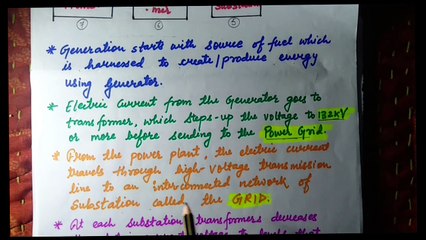 mer
⑦ ⑥ ⑤
* Generation starts with source of fuel which
is harnessed to create/produce energy
using Generator.
* Electric Current from the Generator goes to
transformer, which steps-up the voltage to 132KV
or more before sending to the Power Grid.
* From the power plant, the electric current
travels through high-voltage transmission
line to an interconnected network of
substation called the GRID.
* At each substation transformers decreases